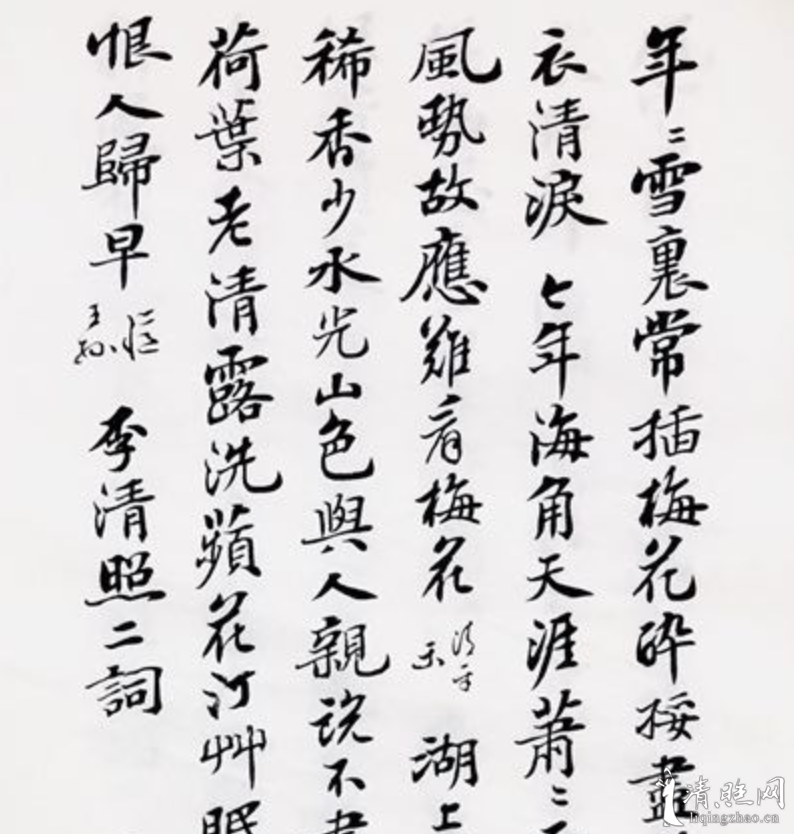 年〻雪裏常插梅花醉挼盡
衣清淚 七年海角天涯蕭〻
風勢故應難看梅花 清平樂 湖上
稀香少水光山色與人親說不
荷葉老清露洗蘋花汀艸眠
恨人歸早 憶王孫 李清照二詞
liqingzhao.cn